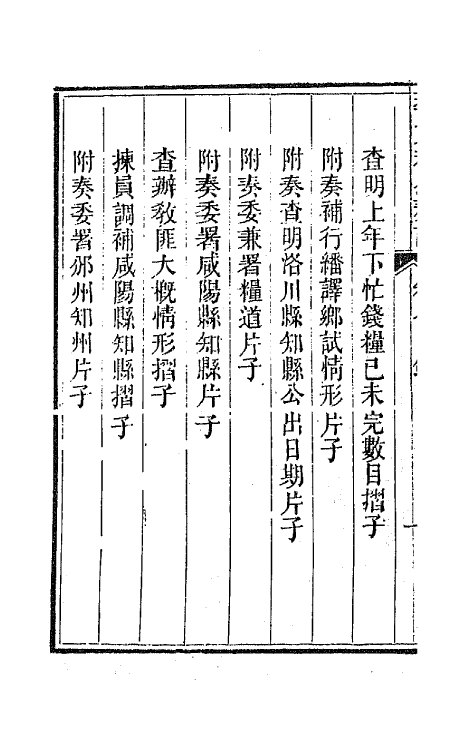 查明上年下忙錢糧已未完數目摺子
附奏補行繙譯鄉試情形片子
附奏查明洛川縣知縣公出日期片子
附奏委兼署糧道片子
附奏委署咸陽縣知縣片子
查辦敎匪大概情形摺子
揀員調補咸陽縣知縣摺子
附奏委署邠州知州片子